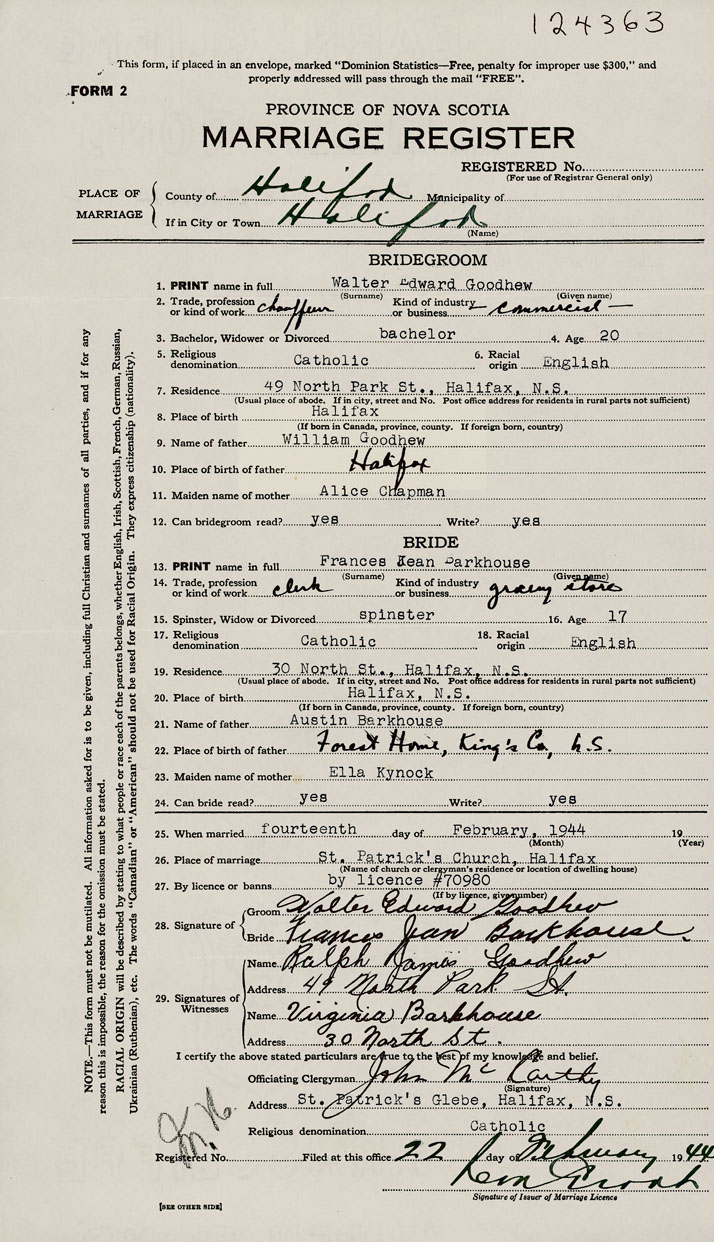 124363
This form, if placed in an envelope, marked "Dominion Statistics—Free, penalty for improper use $300," and
properly addressed will pass through the mail "FREE".
FORM 2
PROVINCE OF NOVA SCOTIA
MARRIAGE REGISTER
REGISTERED No.
(For use of Registrar General only)
PLACE OF MARRIAGE
County of Halifax Municipality of
If in City or Town Halifax
(Name)
BRIDEGROOM
1. PRINT name in full Walter Edward Goodhew
(Surname) (Given name)
2. Trade, profession or kind of work chauffeur Kind of industry or business commercial
3. Bachelor, Widower or Divorced bachelor 4. Age 20
5. Religious denomination Catholic 6. Racial origin English
7. Residence 49 North Park St., Halifax, N.S.
(Usual place of abode. If in city, street and No. Post office address for residents in rural parts not sufficient)
8. Place of birth Halifax
(If born in Canada, province, county. If foreign born, country)
9. Name of father William Goodhew
10. Place of birth of father Halifax
11. Maiden name of mother Alice Chapman
12. Can bridegroom read? yes Write? yes
BRIDE
13. PRINT name in full Frances Jean Barkhouse
(Surname) (Given name)
14. Trade, profession or kind of work clerk Kind of industry or business grocery store
15. Spinster, Widow or Divorced spinster 16. Age 17
17. Religious denomination Catholic 18. Racial origin English
19. Residence 30 North St., Halifax, N.S.
(Usual place of abode. If in city, street and No. Post office address for residents in rural parts not sufficient)
20. Place of birth Halifax, N.S.
(If born in Canada, province, county. If foreign born, country)
21. Name of father Austin Barkhouse
22. Place of birth of father Forest Home, King's Co, N.S.
23. Maiden name of mother Ella Kynock
24. Can bride read? yes Write? yes
25. When married fourteenth day of February, 1944 19
(Month) (Year)
26. Place of marriage St. Patrick's Church, Halifax
(Name of church or clergyman's residence or location of dwelling house)
27. By licence or banns by licence #70980
(If by licence, give number)
28. Signature of
Groom Walter Edward Goodhew
Bride Frances Jean Barkhouse
29. Signatures of Witnesses
Name Ralph James Goodhew
Address 49 North Park St.
Name Virginia Barkhouse
Address 30 North St.
I certify the above stated particulars are true to the best of my knowledge and belief.
Officiating Clergyman John McCarthy
(Signature)
Address St. Patrick's Glebe, Halifax, N.S.
Religious denomination Catholic
Registered No. Filed at this office 22 day of February 1944
Signature of Issuer of Marriage Licence
[SEE OTHER SIDE]
NOTE.—This form must not be mutilated. All information asked for is to be given, including full Christian and surnames of all parties, and if for any
reason this is impossible, the reason for the omission must be stated.
RACIAL ORIGIN will be described by stating to what people or race each of the parents belongs, whether English, Irish, Scottish, French, German, Russian,
Ukrainian (Ruthenian), etc. The words "Canadian" or "American" should not be used for Racial Origin. They express citizenship (nationality).